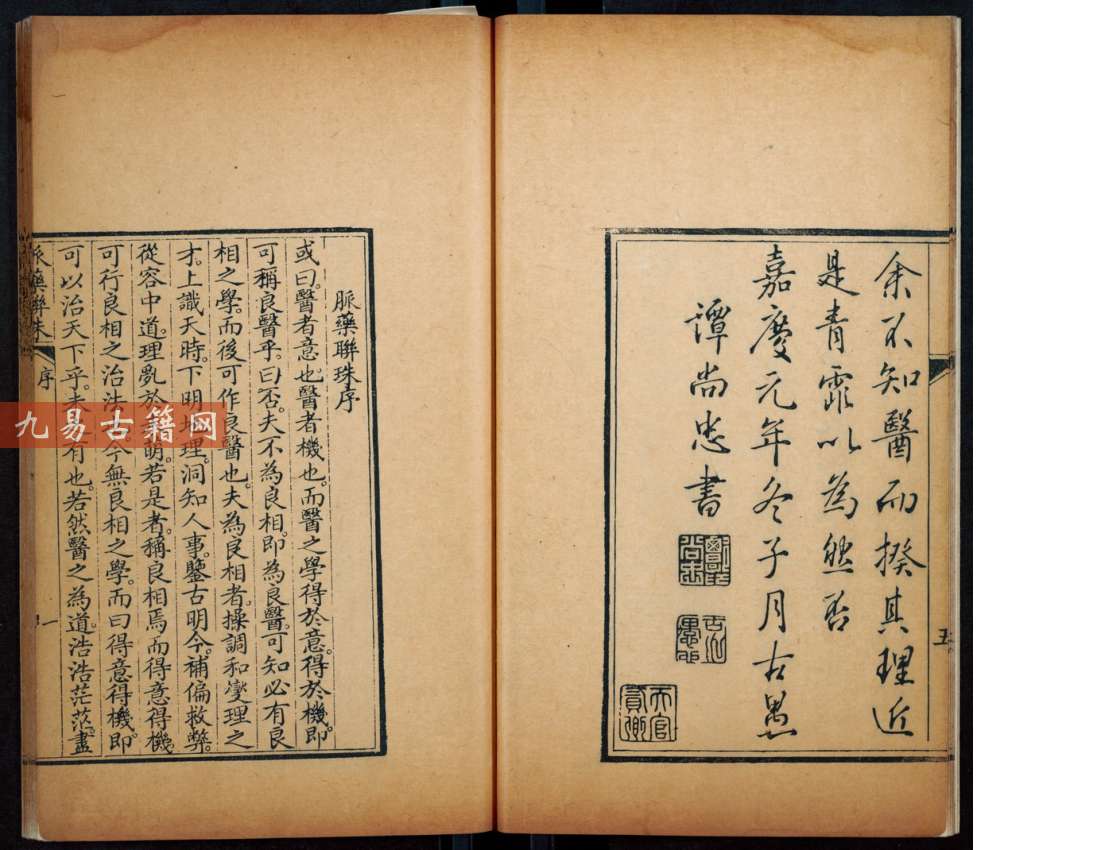 余不知醫而揆其理近
是青霏以為然否
嘉慶元年冬子月古愚
譚尚忠書
五
脈藥聯珠序
或曰。醫者意也。醫者機也。而醫之學得於意。得於機。即
可稱良醫乎。曰否。夫不為良相。即為良醫。可知必有良
相之學。而後可作良醫也。夫為良相者。操調和燮理之
才。上識天時。下明地理。洞知人事。鑒古明今。補偏救弊。
從容中道。理亂於萌。若是者。稱良相焉。而得意得機。
可行良相之治法。今無良相之學。而曰得意得機。即
可以治天下乎。未有也。若然醫之為道。浩浩茫茫。盡
脈藥聯珠
序
一
九易古籍网